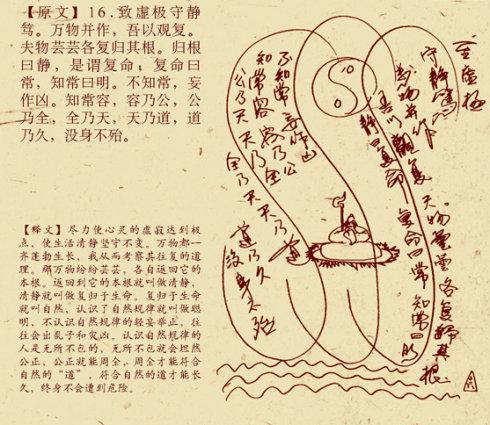 【原文】16.致虚极守静
笃。万物并作，吾以观复。
夫物芸芸各复归其根。归根
曰静，是谓复命；复命曰
常，知常曰明。不知常，妄
作凶。知常容，容乃公，公
乃全，全乃天，天乃道，道
乃久，没身不殆。
【释文】尽力使心灵的虚寂达到极
点，使生活清静坚守不变。万物都一
齐蓬勃生长，我从而考察其往复的道
理。那万物纷纷芸芸，各自返回它的
本根。返回到它的本根就叫做清静，
清静就叫做复归于生命。复归于生命
就叫自然，认识了自然规律就叫做聪
明，不认识自然规律的轻妄举止，往
往会出乱子和灾凶。认识自然规律的
人是无所不包的，无所不包就会坦然
公正，公正就能周全，周全才能符合
自然的“道”，符合自然的道才能长
久，终身不会遭到危险。
至虚极
守静笃
万物并作
吾以观复
夫物芸芸各复归其根
静曰复命
复命曰常
知常曰明
不知常妄作凶
知常容容乃公
公乃全
全乃天天乃道
道乃久
没身不殆